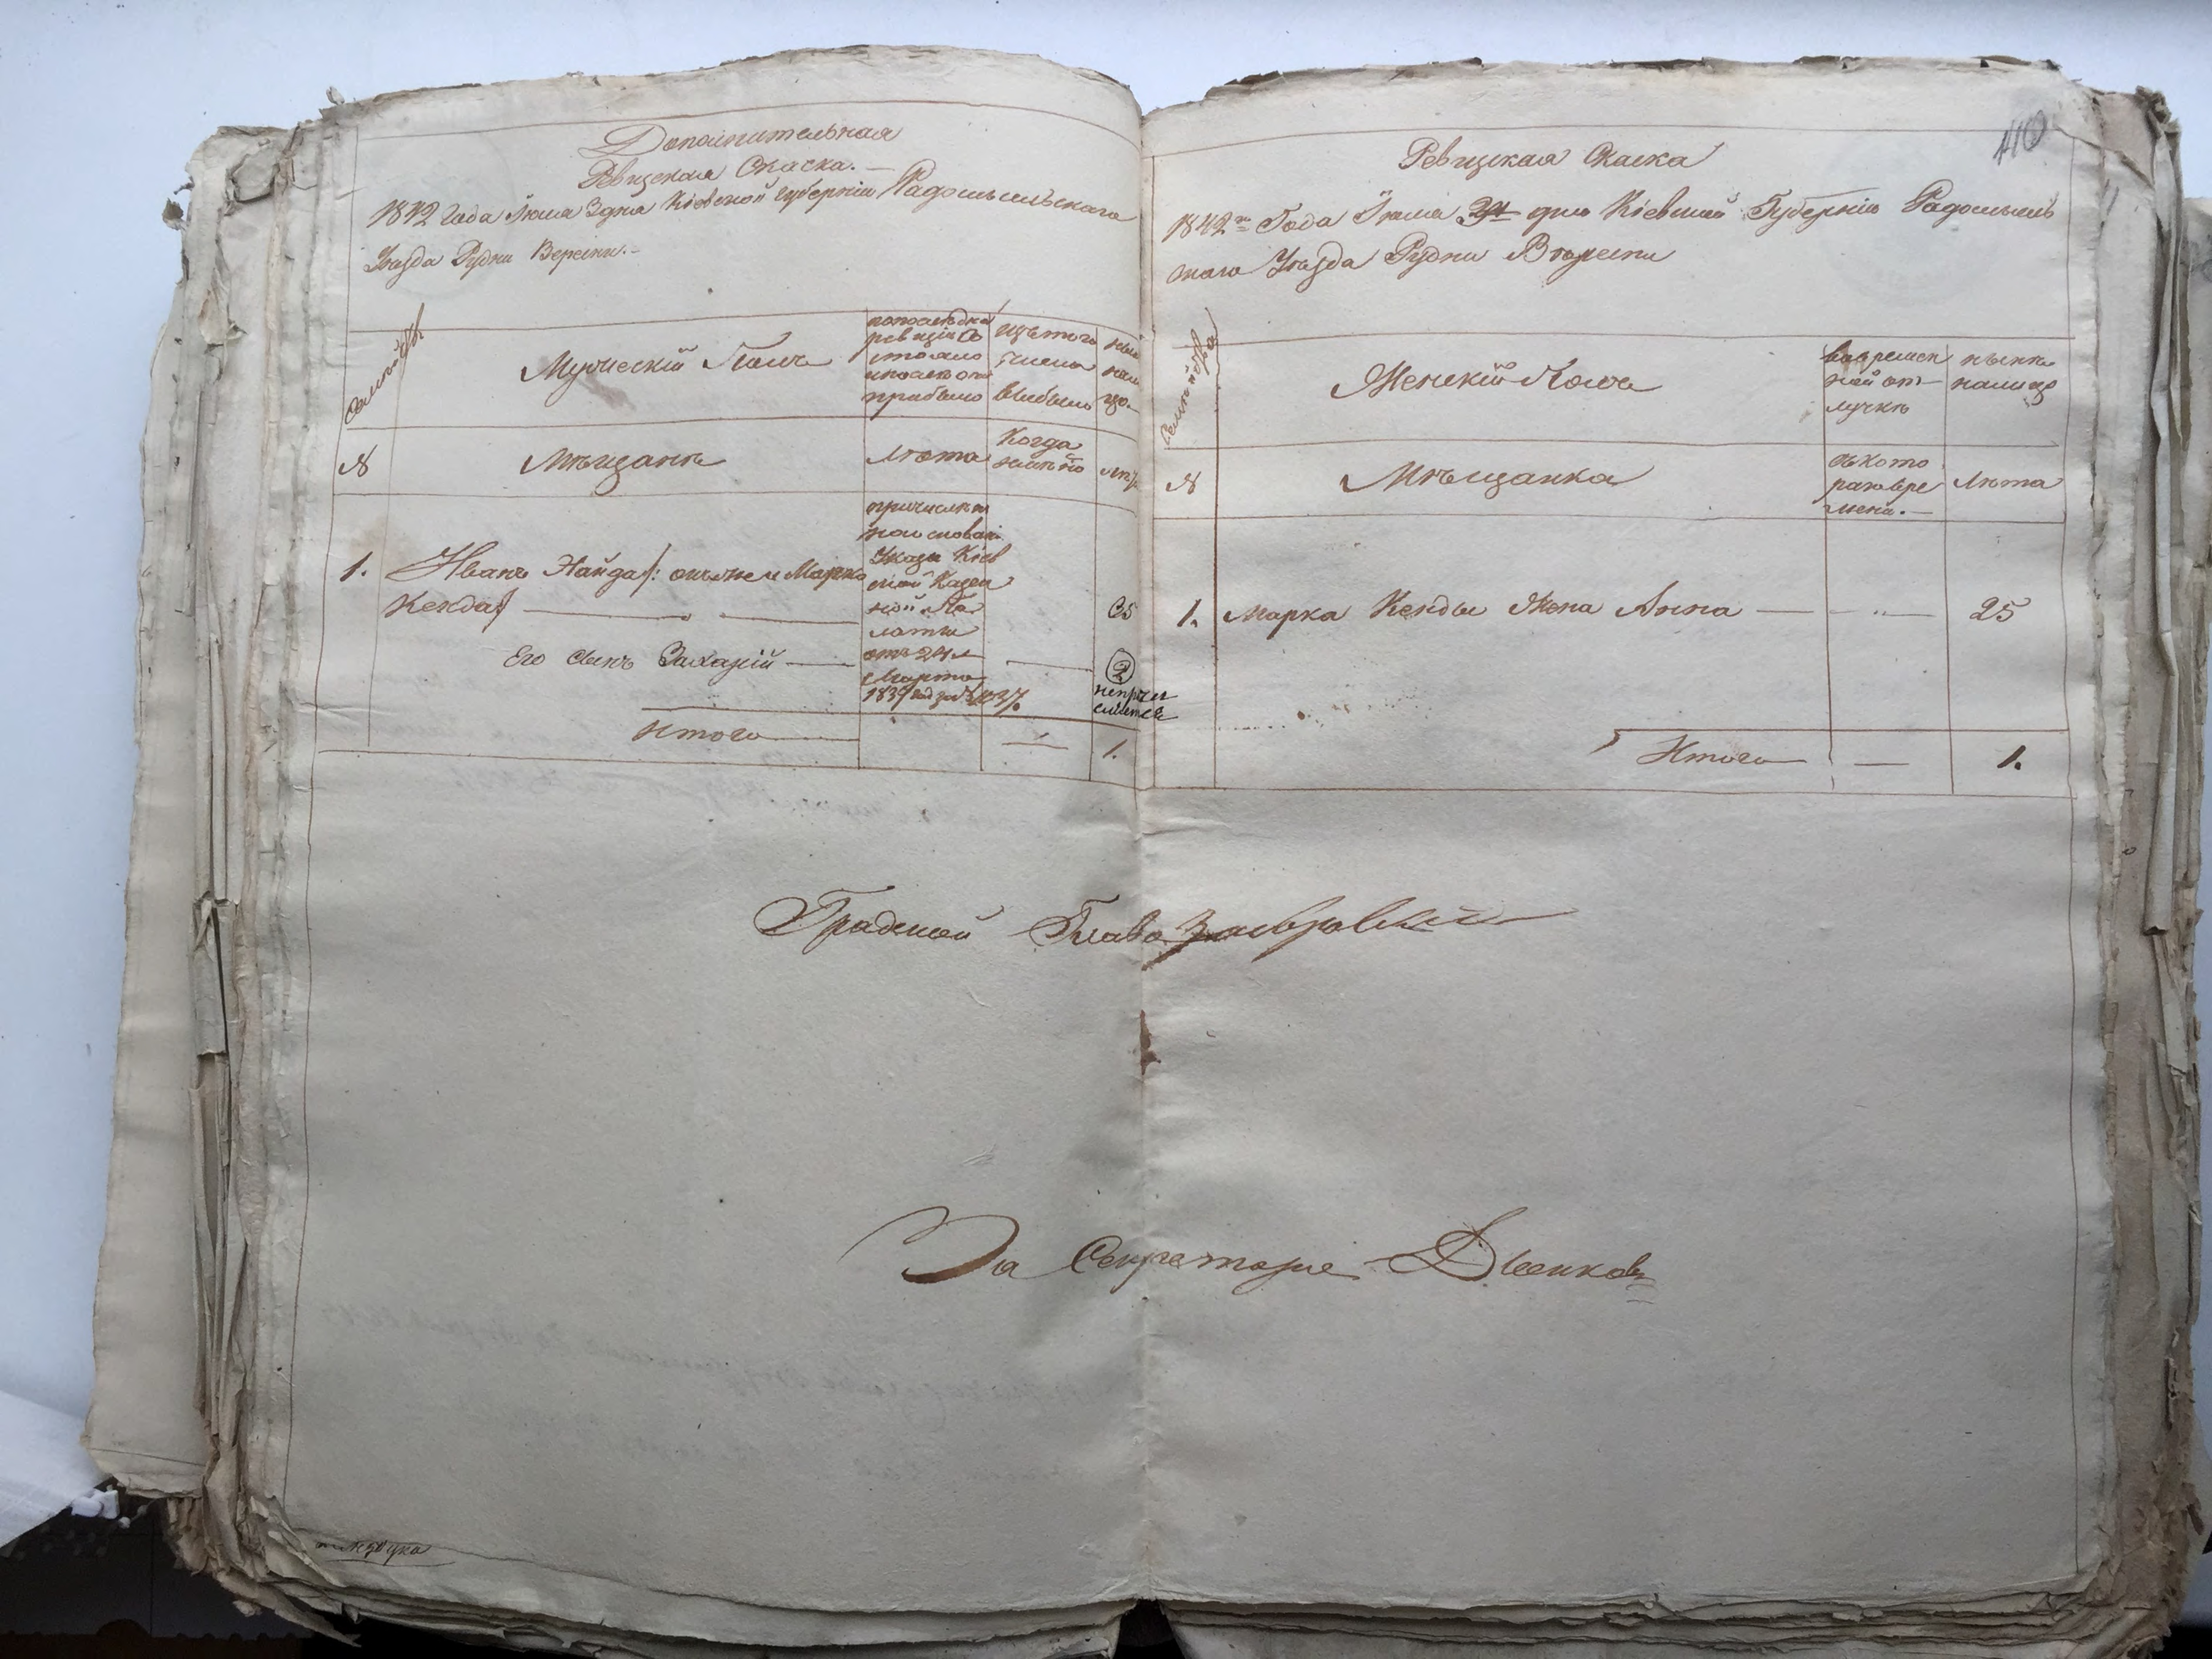 Дополнительная
Ревизская Скаска.—
1842 года Июня 3 дня Кіевской губерніи Радомысльскаго
Уезда Рудни Вересни.—
Семейства
Мужескій Полъ
последней
ревизіи со
стояло
и после оной
прибыло
изъ того
числа
выбыло
ныне
на ли
цо.
№
Мѣщанъ
Лѣта
Когда
именно
лѣта
1.
Иванъ Найда /: онъ же и Марко
Кенда /
причислен
на основаніи
Указа Кіев
ской Казен
ной Па
латы
отъ 24
Марта
1839
35
Его сынъ Захарій
2
непричи
сляется
Итого
—
1.
110
Ревизская Скаска
1842 Года Июня дня Кіевской Губерніи Радомысль
скаго Уезда Рудни Вересни
Семейства
Женскій Полъ
во времен
ной от-
лучке
ныне
налицо
№
Мѣщанка
съ кото
раго вре
мени.—
Лѣта
1.
Марка Кенды Жена Анна — — 25
Итого — 1.
Градской Глава
За Секретаря